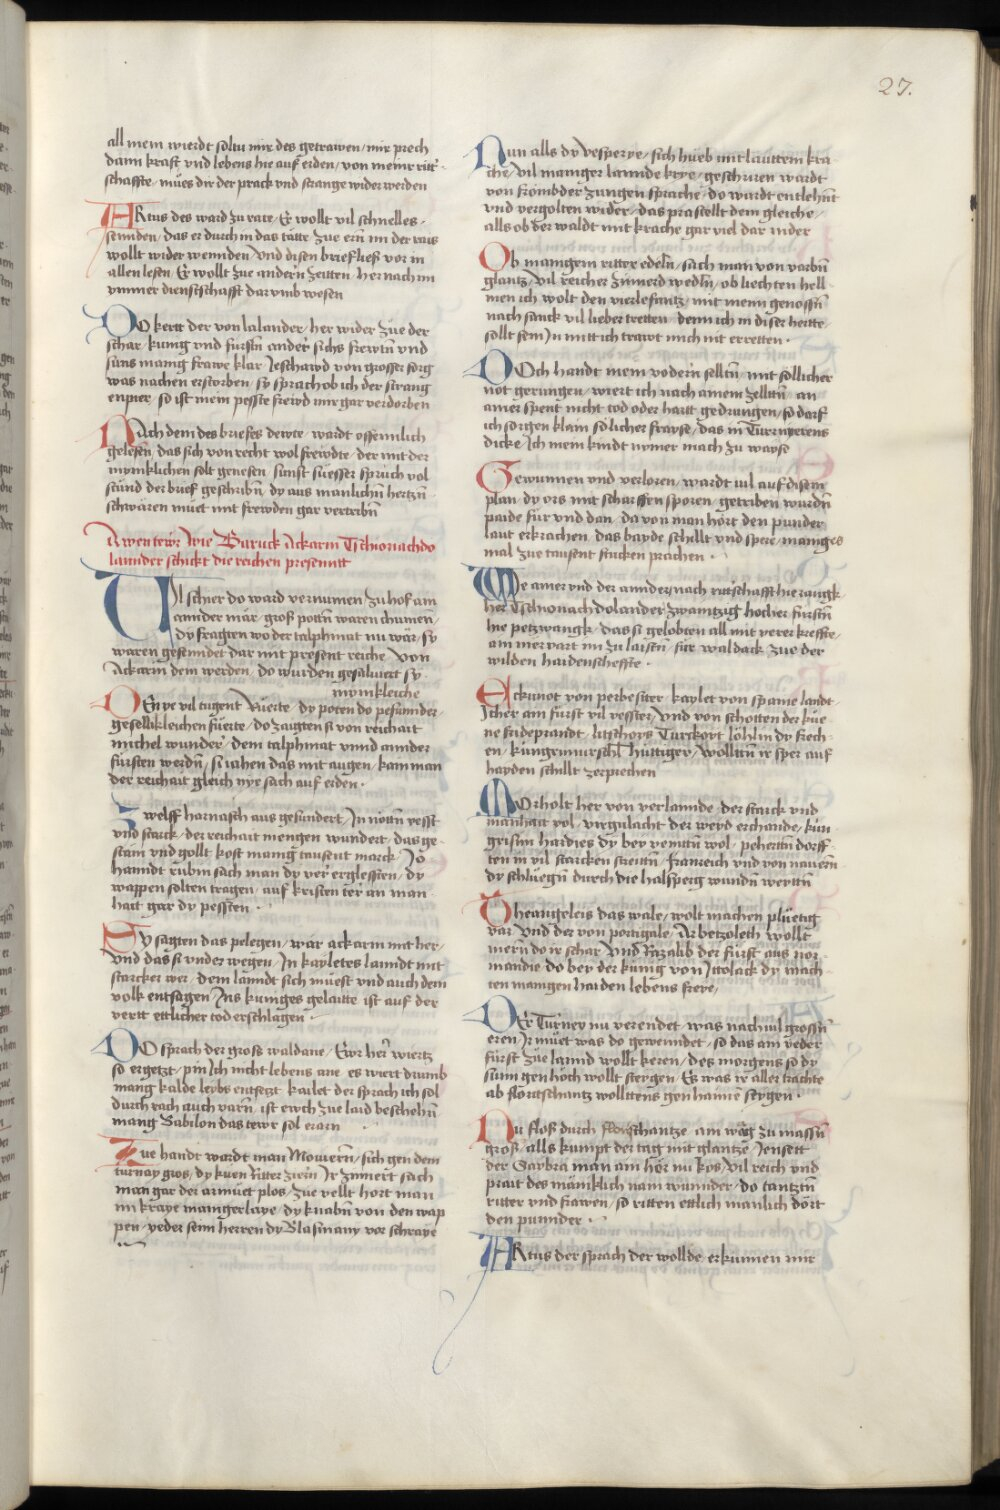 27.
all mein wierdt soltu mir des getrawen / mir prech
dann krafft vnd lebens hie auf erden / von meinr ritt-
schaffte / mües dir der prack vnd strange wider werden
ARtus des ward zu rate / Er wollt vil schnelles
sennden / das er durch in das tätte / zue ern im der rais
wollt wider wennden / vnd disen brief lies vor in
allen lesen / Er wollt zue andern zeitten / hernach im
ymmer dienstschafft darumb wesen
DO kertt der von lalander / her wider zue der
schar / kunig vnd fürstn ander / sichs frewtn vnd
suns manig frawe klar / Jeschawd von grosser sorg
was nachen erstorben / sy sprach ob ich der strang
enpier / so ist mein pesste frewd mir gar verdorben
NAch dem des briefes dewte / wardt offennlich
gelesen / das sich von recht wol frewdte / der mit der
mynklichen solt genesen / sunst suesser spruch vol
stund der brief geschribn / dy aus manlichn hertzn
schwären muet mit frewden gar vertribn
Awentewr wie Baruck Ackarin Tschionachdo
lannder schickt die reichen presenntt
VIl schier do ward vernumen / zu hof ain
annder mär / gros pottn waren chumen /
dy fragten wo der talphinat nu wär / sy
waren gesenndet dar mit present reiche / von
Ackarin dem werden / do wurden gesaluiert sy
mynkleiche
DEnye vil tugent rüerte / dy poten do pesunnder
geselliklichen füerte / do zaigten si von reichait
michel wunder / dem talphinat vnnd annder
fürsten werdn / si iahen das mit augen / kain man
der reichait gleich nye sach auf erden
Zwelff harnasch aus gesundert / Jn nöttn vesst
vnd starck / der reichait mengen wundert / das ge-
stain vnd gollt kost manig tausent marck / Jo
hanndt rubin sach man dy ver erglessten / dy
wappen solten tragen / auf kristen ter an man-
hait gar dy pessten
SY sagten das pelegen / wär ackarin mit her
vnd das si vnder wegen / Jn kayletes lanndt mit
starcker wer / dem lanndt sich müest vnd auch dem
volk entsagen / Jns kuniges gelaitte ist auf der
vertt ettlicher tod erschlagen
DO sprach der gross waldane / Ewr her wiertz
so ergetzt / pin ich nicht lebens ane / es wiert drumb
manig kalde leybs entsetzt / kailet der sprach ich sol
durch rach auch varn / ist ewch zue laid beschehn
manig Babilon das tewr sol erarn
Zue handt wardt man Monieren / sich gen dem
turnay gros / dy kuen Ritter ziern / Jr zimiert sach
man gar der armüet plos / zue vellt hort man
im kraye mainger laye / dy knabn von den wap-
pen / yeder seim herren dy Blasinany vor schraye
NUn alls dy vesperye / sich hüeb mit lauttem kra-
che / vil mainiger lannde krye / geschriren wardt
von frömbder zungen sprache / do wardt entlehnt
vnd vergolten wider / das prastellt dem gleiche /
alls ob der waldt mit krache gar viel dar nider
OB mainigem ritter edeln / sach man von varbn
glantz / vil reicher zimierd wedln / ob liechten hell-
men ich wolt den vierlefantz / mit meim genossn
nach sanck vil lieber tretten / denn ich in diser hertte
sollt sein / Jn mitt ich trawt mich nit erretten
DOch handt mein vodern selltn / mit sollicher
not gerungen / wiert ich nach ainem zelltn / an
ainer spent nicht tod oder hart gedrungen / so darf
ich sorgen klain solicher frayse / das in Turnayerens
dicke / Jch mein kindt nymer mach zu wayse
Gewunnen vnd verloren / wardt vil auf disem
plan / dy ors mit scharffen sporen / getriben wurdn
paide für vnd dan / da von man hort den punder
laut erkrachen / das bayde schillt vnd spere / mainiges
mal zue tausent stucken prachen
WIe ainer vnd der annder / nach rittschafft hie rangk
her Tschionachdolander / zwaintzig hocher fürstn
hie petzwangk / das si gelobten all mit yerer kreffte /
ain mervart im zu laistn / für waldack zue der
wilden haidenscheffte
Eckunot von perbester / kaylet von spanie landt
Jcher ain fürst vil vesster / vnd von schotten der küe-
ne frideprandt / lutschoys Turckoyt löhlin dy frech-
en / kungrimursel huttiger / wolltnn ir sper auf
hayden schillt zerprechen
MOrholt her von yerlannde / der starck vnd
manhait vol / virgulacht der weyd erchande / kün-
grisinn hardies dy bey venuttn wol / pehertn dorff-
ten in vil starcken streittn / franreich vnd von nauern
dy schluegn durch die halsperg wundn weyttn
Theangeleis das wale / wolt machen pluetig
var / Vnd der von portigale / Ar betzoleth wollt
mern do ir schar / Vnd Ritzalib der fürst aus nor-
mandie / do bey der künig von Jttolack dy mach-
ten mainigen haiden lebens freye /
DEr Turney nu verendet / was nach vil grossn
eren / Jr müet was do gewenndet / so das ain yeder
fürst zue lannd wollt keren / des morgens so dy
sunn gen hoch wollt steygen / Es was ir aller trachte
ab floritschantz wolltens gen haime seygen
NU floss durch floritschantze / ain wag zu massn
gross / alls kumpt der tag mit glantze / Jensett
der Saybra man ain hör nu kos / vil reich vnd
prait des mäniklich nam wunnder / do tantztn
ritter vnd frawen / so ritten ettlich manlich dört
den punnder
ARtus der sprach der wollde / erkunnen mir